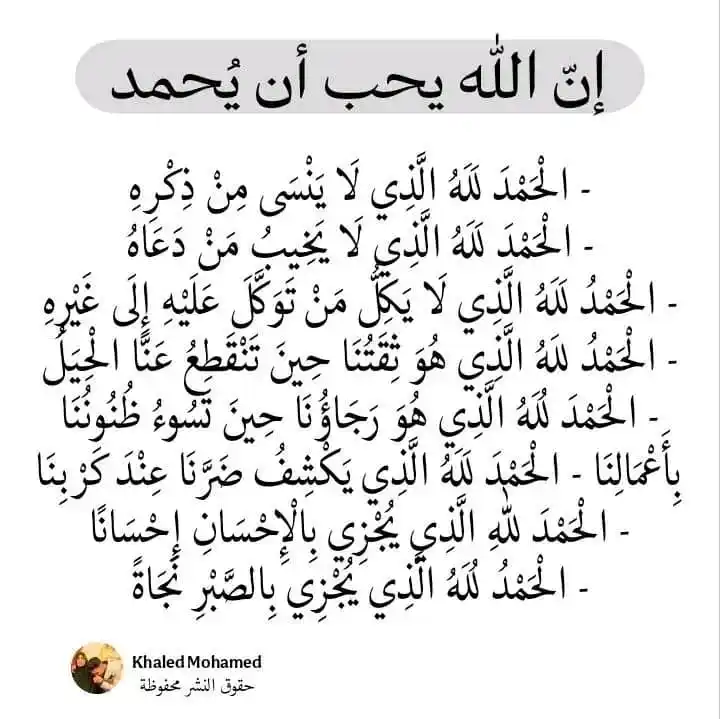 إنّ الله يحب أن يُحمد
- الْحَمْدَ لَلَهُ الَّذِي لَا يَنْسَى مِنْ ذِكْرِهِ
- الْحَمْدَ لَلَهُ الَّذِي لَا يَخِيبُ مَنْ دَعَاهُ
- الْحَمْدُ لَلَهُ الَّذِي لَا يَكِلُّ مَنْ تَوَكَّلَ عَلَيْهِ إِلَى غَيْرِهِ
- الْحَمْدُ لَلَهُ الَّذِي هُوَ ثِقَتُنَا حِينَ تَنْقَطِعُ عَنَّا الْحِيَلُ
- الْحَمْدَ لُلَهُ الَّذِي هُوَ رَجَاؤُنَا حِينَ تَسُوءُ ظُنُونُنَا
بِأَعْمَالِنَا - الْحَمْدَ لَلَهُ الَّذِي يَكْشِفُ ضَرَّنَا عِنْدَ كَرْبِنَا
- الْحَمْدَ لِلَّهِ الَّذِي يُجْزِي بِالْإِحْسَانِ إِحْسَانًا
- الْحَمْدُ لُلَهُ الَّذِي يُجْزِي بِالصَّبْرِ نَجَاةً
Khaled Mohamed
حقوق النشر محفوظة